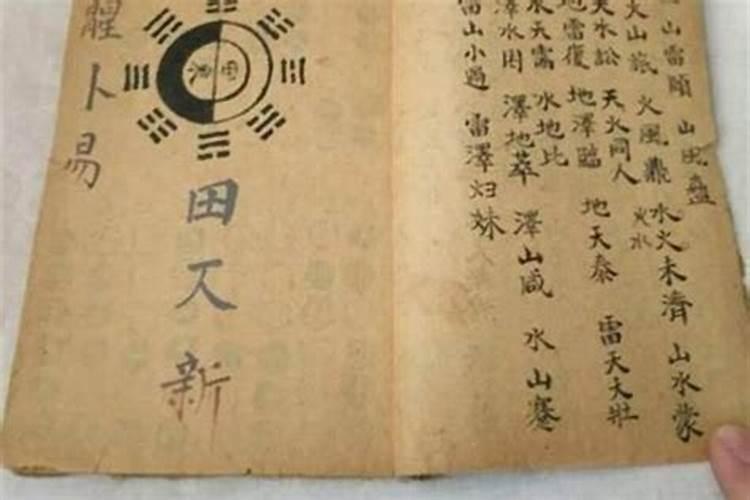 山雷頤 山風蠱
火山旅 火風鼎 水火未濟 山水蒙
火水
天水訟 天火同人
地雷復 地澤臨 地天泰 雷天大壯
水天需 水地比
澤水困 澤地萃 澤山咸 水山蹇
雷山小過 雷澤归妹
田
田 新
卜易